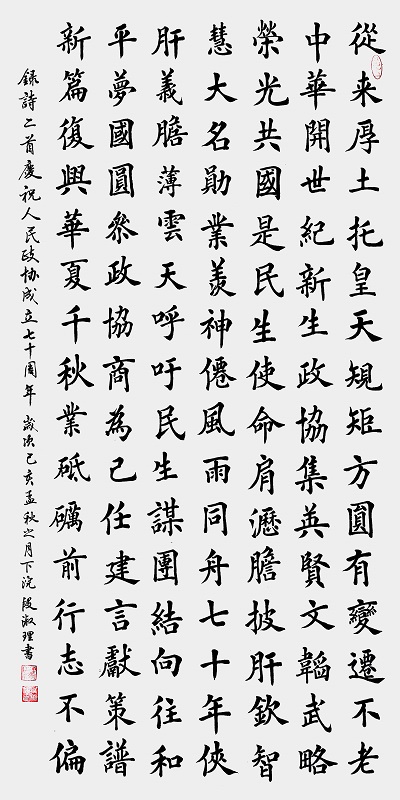 從来厚土托皇天規矩方圓有變遷不老
中華開世紀新生政協集英賢文韜武略
榮光共國是民生使命肩瀝膽披肝欽智
慧大名勛業羨神僊風雨同舟七十年俠
肝義膽薄雲天呼吁民生謀團結向往和
平夢國圓叅政協商為己任建言獻策譜
新篇復興華夏千秋業砥礪前行志不偏
録詩二首慶祝人民政协成立七十周年 歲次己亥孟秋之月下浣 段淑理書